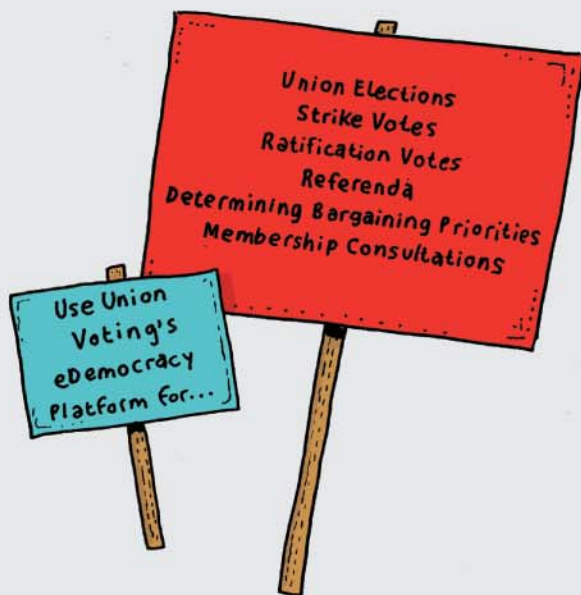 Use Union
Voting's
eDemocracy
Platform for...
Union Elections
Strike Votes
Ratification Votes
Referenda
Determining Bargaining Priorities
Membership Consultations